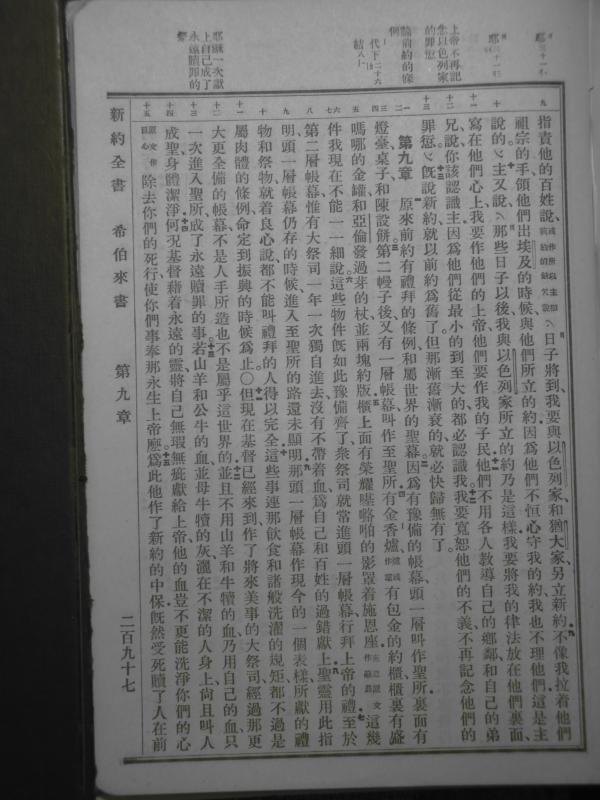 上帝不再記
念以色列家
的罪愆
耶穌一次獻
上自己成了
永遠贖罪的
祭
九
指責他的百姓說、日子將到、我要與以色列家和猶大家、另立新約、不像我拉着他們
祖宗的手領他們出埃及的時候、與他們所立的約、因爲他們不恒心守我的約、我也不理他們、這是主
十
說的、主又說、那些日子以後、我與以色列家所立的約乃是這樣、我要將我的律法放在他們裏面、
寫在他們心上、我要作他們的上帝、他們要作我的子民、他們不用各人敎導自己的鄉鄰、和自己的弟
十二
兄說、你該認識主、因爲他們從最小的到至大的、都必認識我、我要寬恕他們的不義、不再記念他們的
十三
罪愆、旣說新約、就以前約爲舊了、但那漸舊漸衰的、就必快歸無有了。
一二 第九章 原來前約有禮拜的條例、和屬世界的聖幕、因爲有豫備的帳幕、頭一層叫作聖所、裏面有
三四
燈臺、桌子、和陳設餅、第二幔子後又有一層帳幕、叫作至聖所、有金香爐、有包金的約櫃、櫃裏有盛
五
嗎哪的金罐、和亞倫發過芽的杖、並兩塊約版、櫃上面有榮耀𠼻𡀔啪的影罩着施恩座、這幾
六七
件我現在不能一一細說、這些物件旣如此豫備齊了、衆祭司就常進頭一層帳幕、行拜上帝的禮、至於
八
第二層帳幕、惟有大祭司一年一次獨自進去、沒有不帶着血、爲自己和百姓的過錯獻上、聖靈用此指
九
明頭一層帳幕仍存的時候、進入至聖所的路還未顯明、那頭一層帳幕作現今的一個表樣、所獻的禮
十
物和祭物、就着良心說、都不能叫禮拜的人得以完全、這些事連那飮食和諸般洗濯的規矩、都不過是
十一
屬肉體的條例、命定到振興的時候爲止、○但現在基督已經來到、作了將來美事的大祭司、經過那更
十二
大更全備的帳幕、不是人手所造、也不是屬乎這世界的、並且不用山羊和牛犢的血、乃用自己的血、只
十三
一次進入聖所、成了永遠贖罪的事、若山羊和公牛的血、並母牛犢的灰、灑在不潔的人身上、尙且叫人
十四
成聖、身體潔淨、何況基督藉着永遠的靈、將自己無瑕無疵獻給上帝、他的血豈不更能洗淨你們的心
十五
除去你們的死行、使你們事奉那永生上帝麽、爲此他作了新約的中保、旣然受死贖了人在前
新約全書 希伯來書 第九章 二百九十七